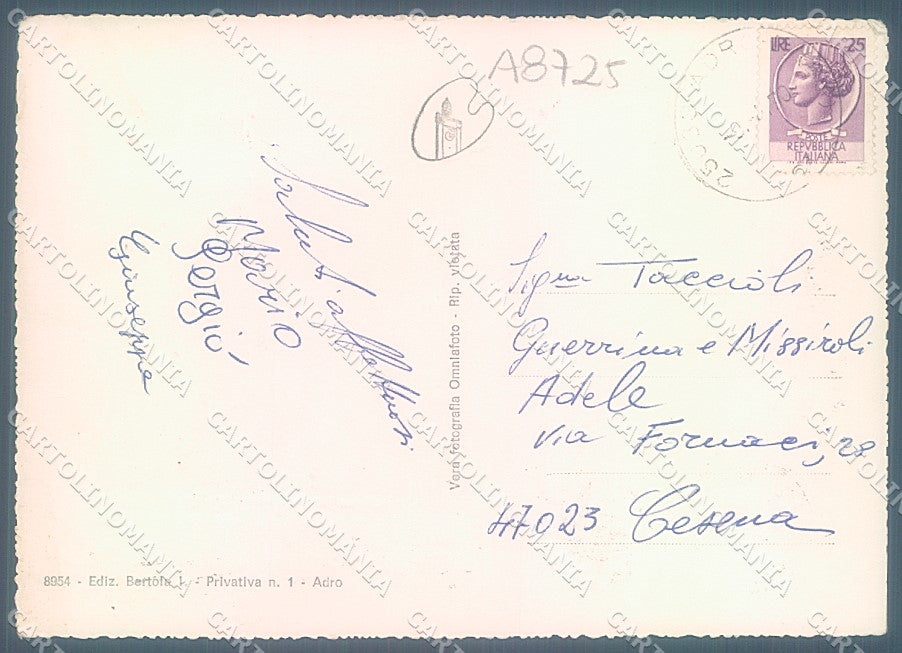 A8725
LIRE 25
POSTE
REPVBBLICA
ITALIANA
Saluti affettuosi
Mario
Sergio
Giuseppe
Vera fotografia Omniafoto - Rip. vietata
Sig.na Taccioli
Guerrina e Missiroli
Adele
via Fornaci, 28
47023 Cesena
8954 - Ediz. Bertola L. - Privativa n. 1 - Adro
CARTOLINOMANIA